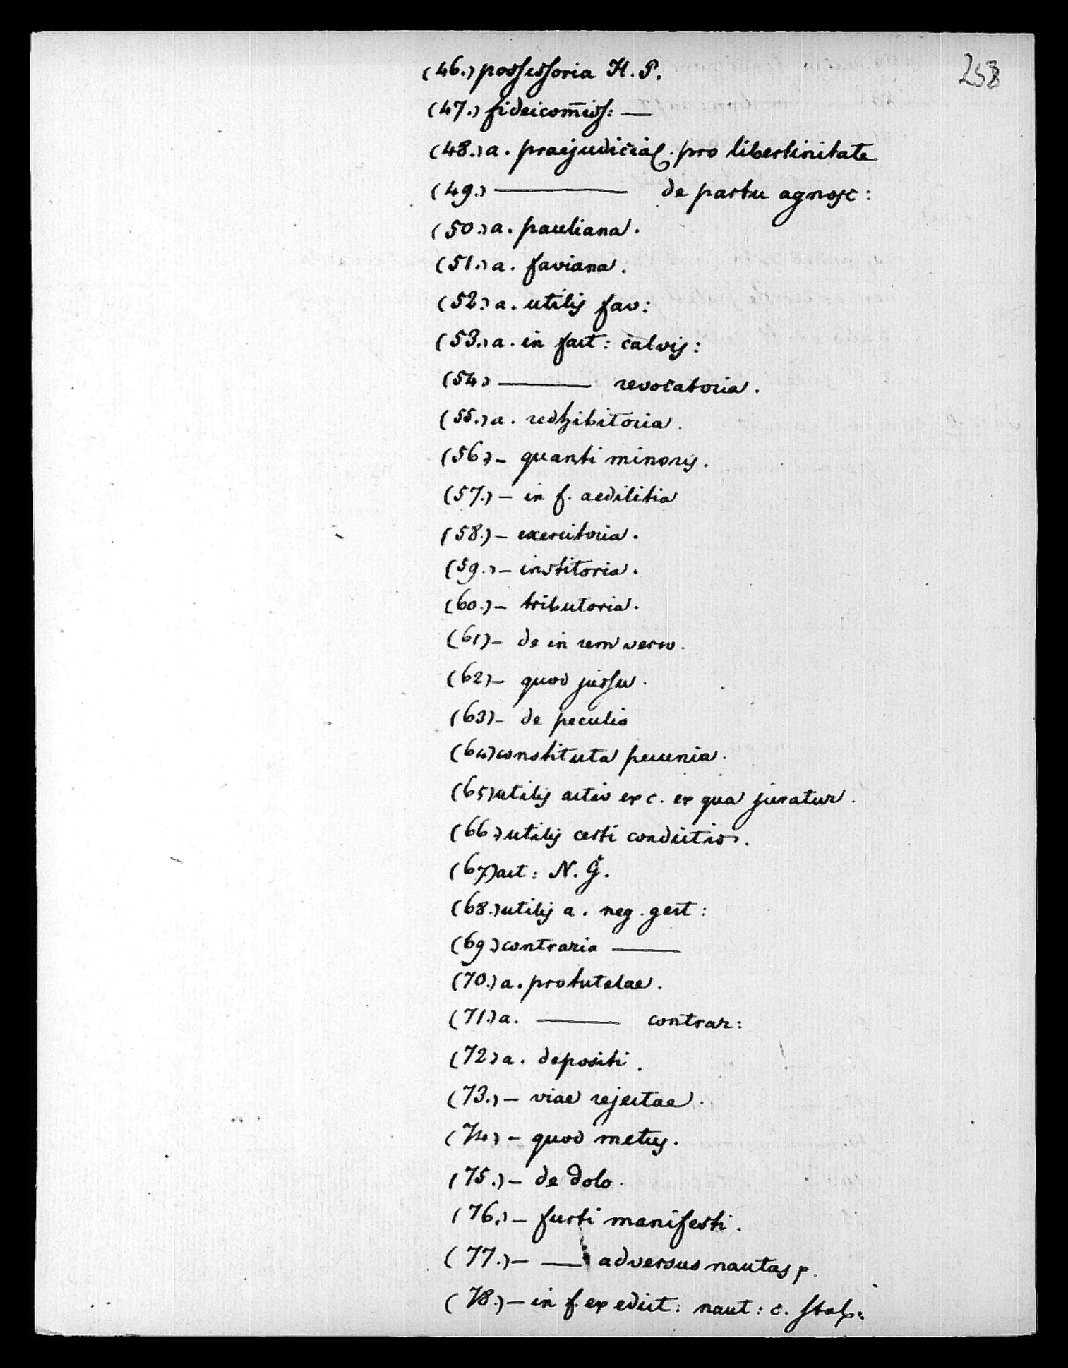 258
(46.) possessoria H. P.
(47.) fideicom̅iss: —
(48.) a. praejudicial. pro libertinitate
(49.) ——— de partu agnosc:
(50.) a. pauliana.
(51.) a. faviana.
(52.) a. utilis fav:
(53.) a. in fact: calvis:
(54) ——— revocatoria.
(55.) a. redhibitoria.
(56.) – quanti minoris.
(57.) – in f. aedilitia
(58.) – exercitoria.
(59.) – institoria.
(60.) – tributoria.
(61) – de in rem verso.
(62) – quod jussu.
(63) – de peculio
(64) constituta pecunia.
(65) utilis actio ex c. ex qua juratur.
(66) utilis certi condictio.
(67) act: N. G.
(68.) utilis a. neg. gest:
(69) contraria ———
(70.) a. protutelae.
(71.) a. ——— contrar:
(72) a. depositi.
(73.) – viae rejectae.
(74) – quod metus.
(75.) – de dolo.
(76.) – furti manifesti.
(77.) – —— adversus nautas p.
(78.) – in f. ex edict: naut: c. stab: